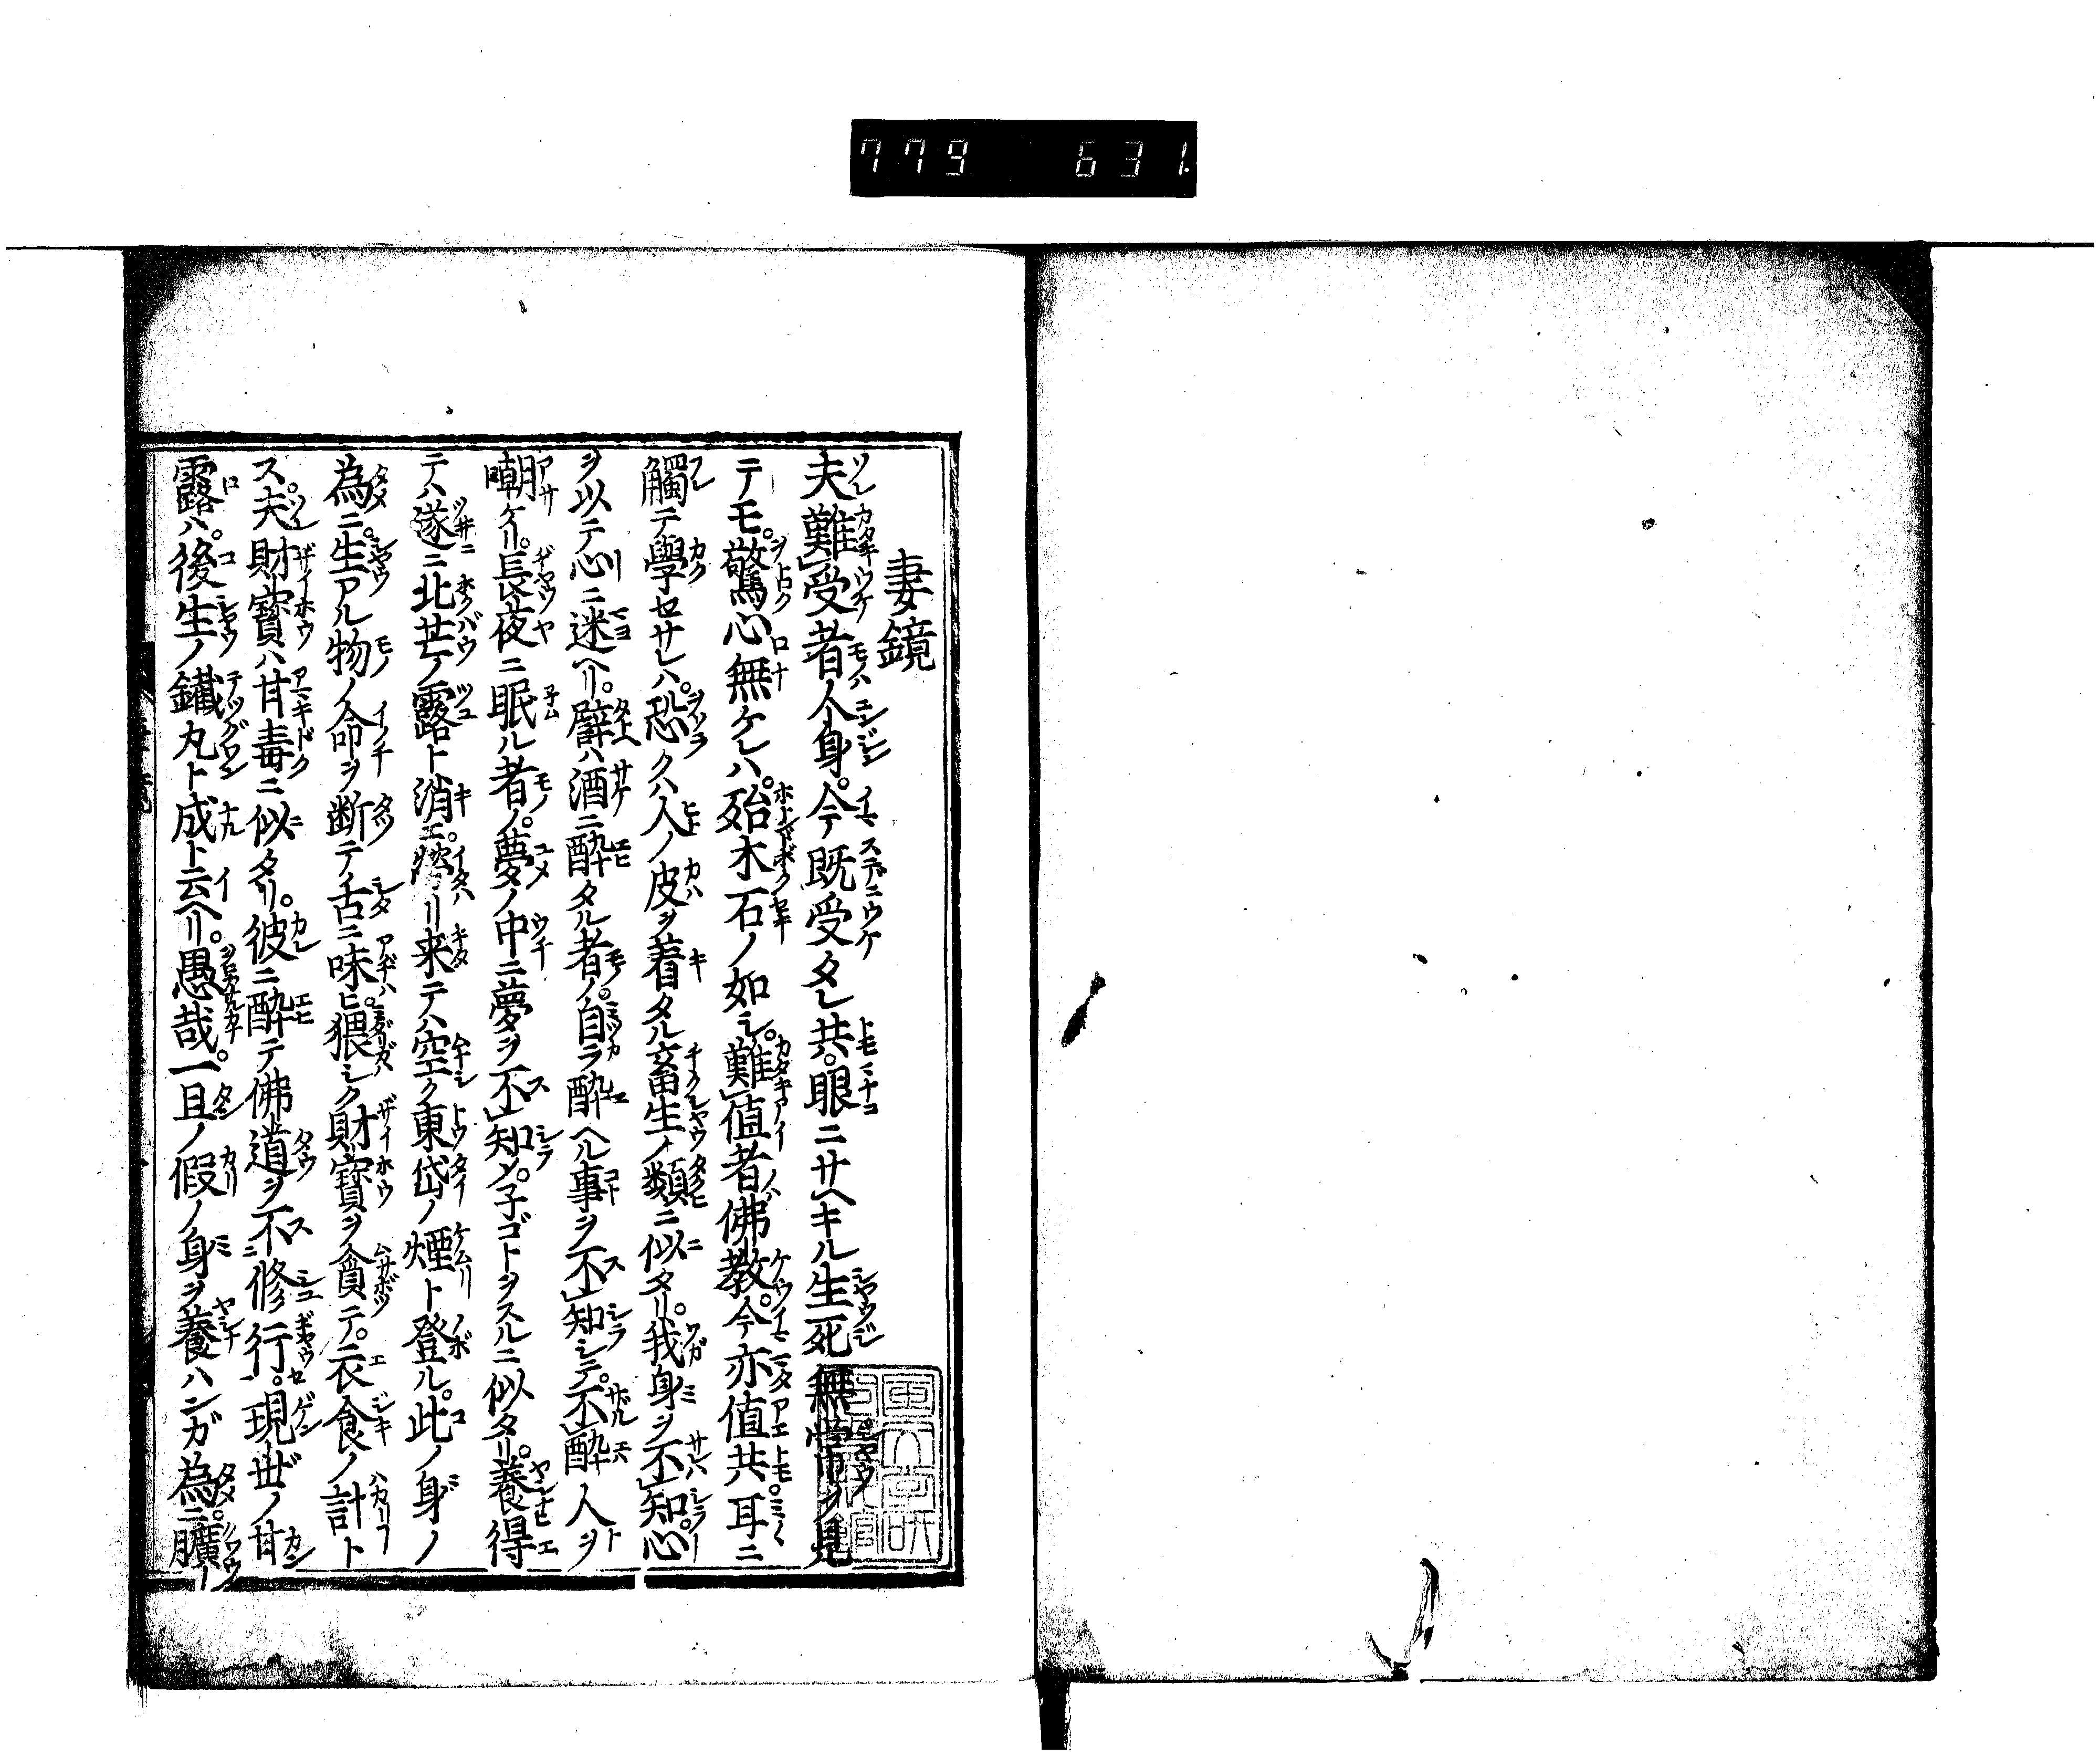 779 631.
妻鏡
夫難受者ノ人身。今既受タレ共。眼ニサヘキル生死無常ヲ見
テモ。驚心無ケレハ。殆木石ノ如シ。難値者佛教。今亦値共耳ニ
觸テ學セサレハ。恐クハ人ノ皮ヲ着タル畜生ノ類ニ似タリ。我身ヲ不知心
ヲ以テ心ニ迷ヘリ。譬ハ酒ニ醉タル者ノ。自ラ醉ヘル事ヲ不知シテ。不醉人ヲ
嘲ケリ。長夜ニ眠ル者ノ。夢ノ中ニ夢ヲ不知ノ。子ゴトヲスルニ似タリ。養得
テハ遂ニ北芒ノ露ト消エ。労リ来テハ空ク東岱ノ煙ト登ル。此ノ身ノ
為ニ。生アル物ノ命ヲ断テ舌ニ味ヒ。猥シク財寶ヲ貪テ。衣食ノ計ト
ス。夫財寶ハ甘毒ニ似タリ。彼ニ醉テ佛道ヲ不修行。現世ノ甘
露ハ。後生ノ鐵丸ト成ト云ヘリ。愚哉。一旦ノ假ノ身ヲ養ハンガ為ニ。曠